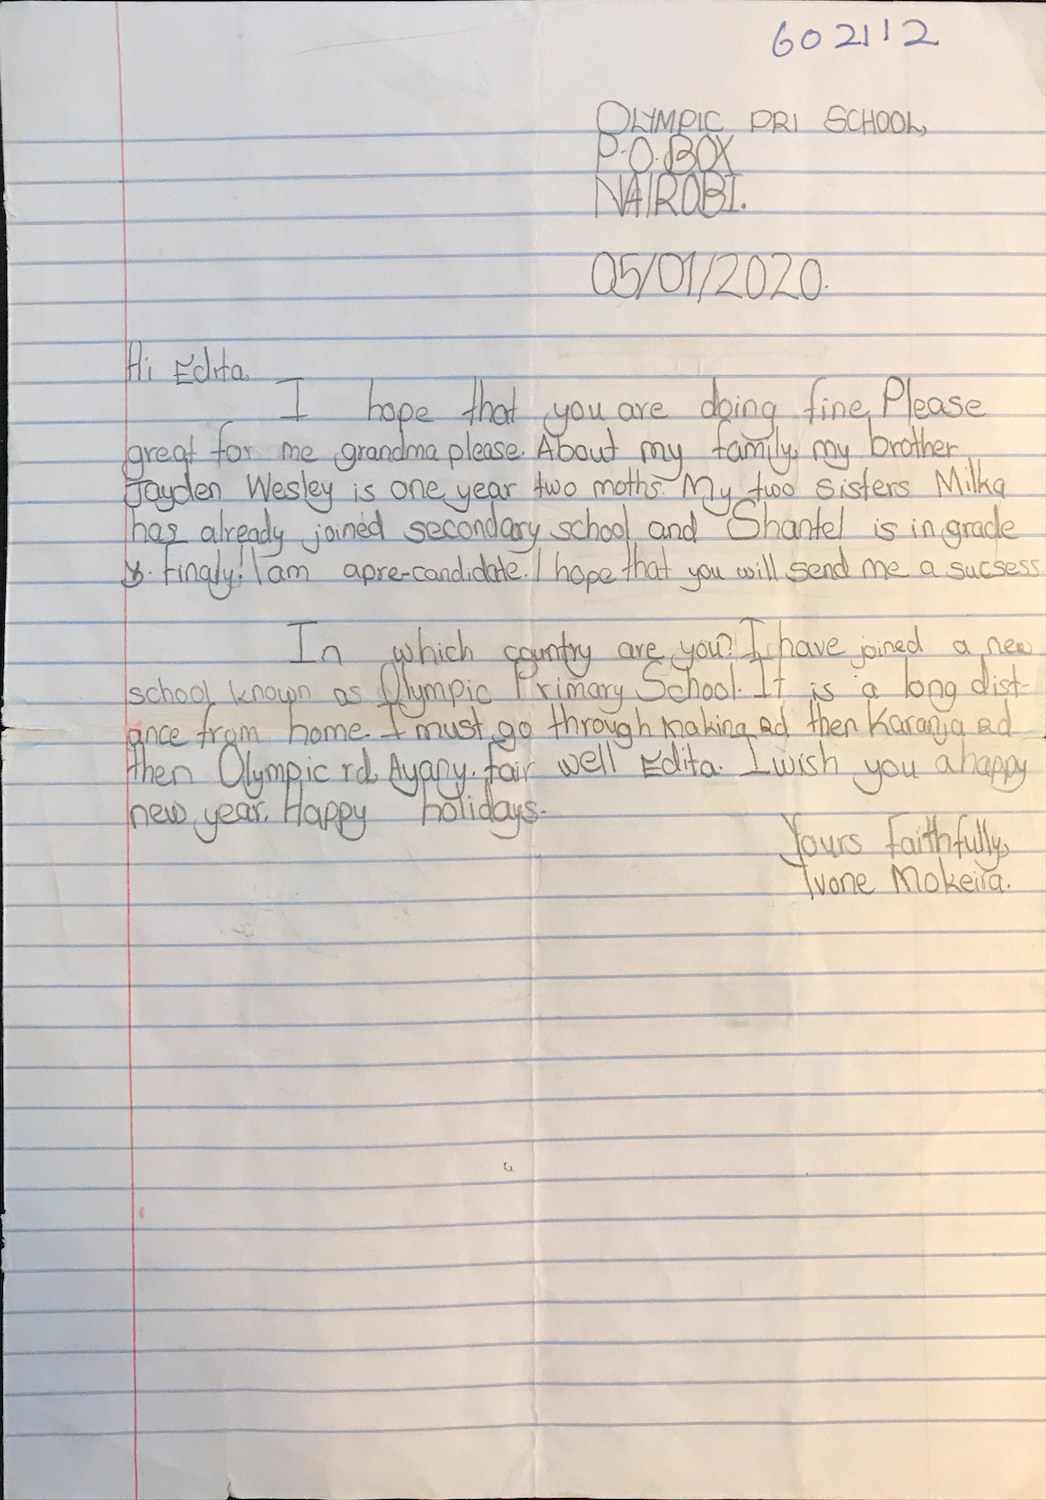 602112
OLYMPIC PRI SCHOOL,
P.O.BOX
NAIROBI.
05/01/2020.
Hi Edita.
I hope that you are doing fine, Please
great for me grandma please. About my family, my brother
Jayden Wesley is one year two moths. My two sisters Milka
has already joined secondary school and Shantel is in grade
Finaly! I am apre-candidate. I hope that you will send me a sucsess.
In which country are you? I have joined a new
school known as Olympic Primary School. It is a long dist-
ance from home. I must go through Making Rd then Karanja Rd
then Olympic rd Ayany. fair well Edita. I wish you a happy
new year. Happy holidays.
Yours Faithfully,
Ivone Mokeira.